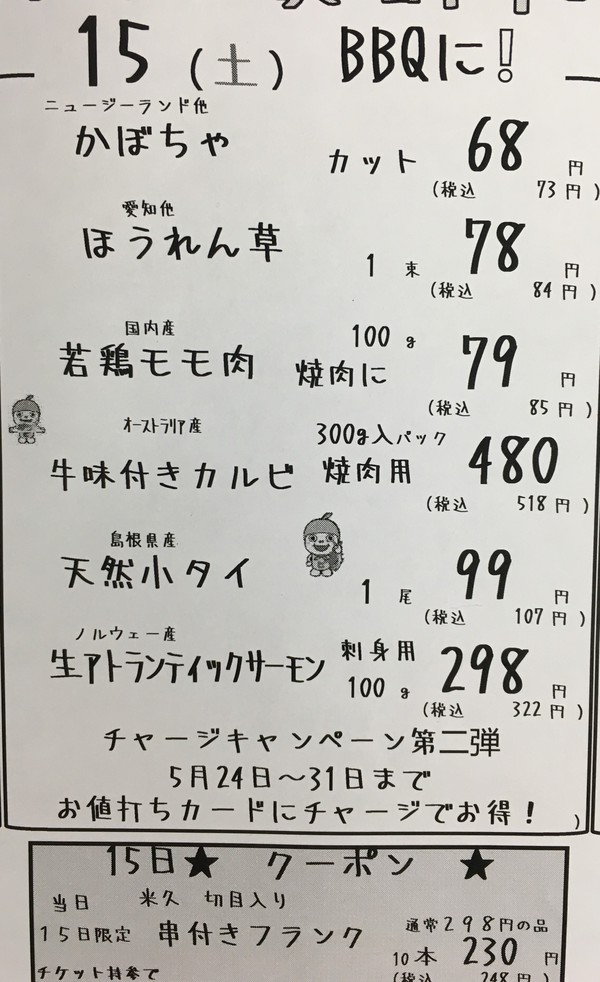 15(土) BBQに!
ニュージーランド他
かぼちゃ カット 68円
(税込 73円)
愛知他
ほうれん草 1束 78円
(税込 84円)
国内産
若鶏モモ肉 焼肉に 100g 79円
(税込 85円)
オーストラリア産
牛味付きカルビ 300g入パック 焼肉用 480
(税込 518円)
島根県産
天然小タイ 1尾 99円
(税込 107円)
ノルウェー産
生アトランティックサーモン 刺身用 100g 298円
(税込 322円)
チャージキャンペーン第二弾
5月24日~31日まで
お値打ちカードにチャージでお得! )
15日★ クーポン ★
当日 米久 切目入り
15日限定 串付きフランク 通常298円の品
10本 230円
チケット持参で (税込 248円